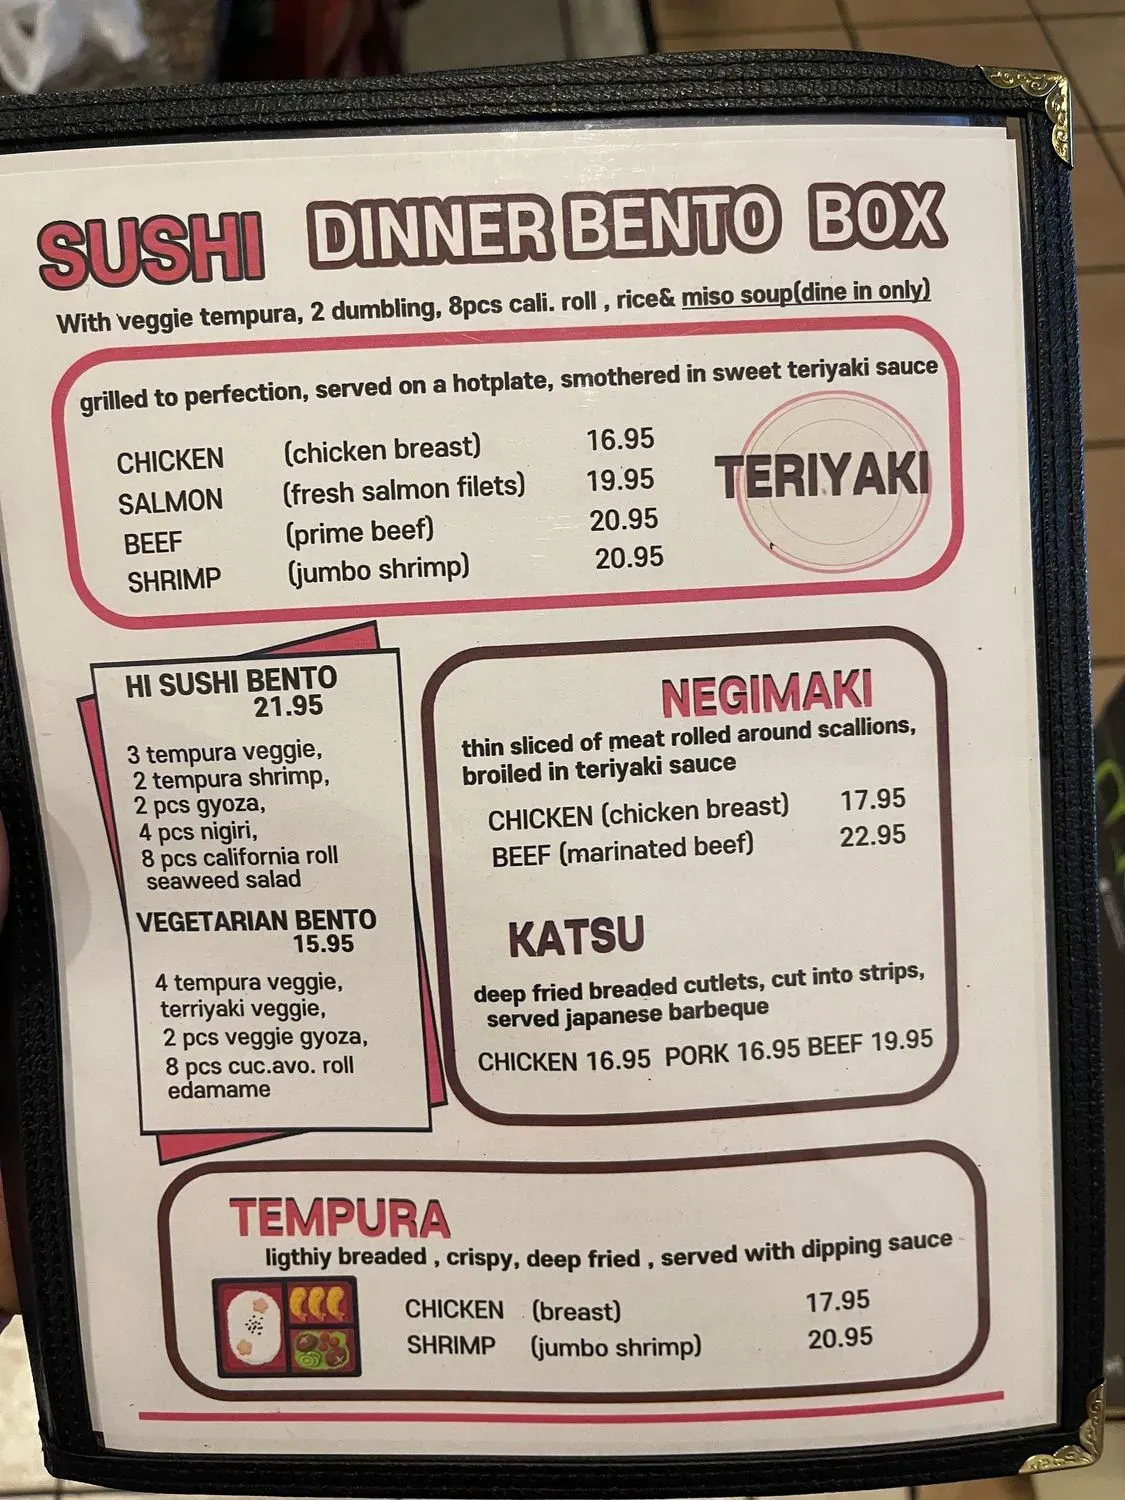 SUSHI DINNER BENTO BOX
With veggie tempura, 2 dumbling, 8pcs cali. roll , rice& miso soup(dine in only)
grilled to perfection, served on a hotplate, smothered in sweet teriyaki sauce
CHICKEN (chicken breast) 16.95
SALMON (fresh salmon filets) 19.95
BEEF (prime beef) 20.95
SHRIMP (jumbo shrimp) 20.95
TERIYAKI
HI SUSHI BENTO
21.95
3 tempura veggie,
2 tempura shrimp,
2 pcs gyoza,
4 pcs nigiri,
8 pcs california roll
seaweed salad
VEGETARIAN BENTO
15.95
4 tempura veggie,
terriyaki veggie,
2 pcs veggie gyoza,
8 pcs cuc.avo. roll
edamame
NEGIMAKI
thin sliced of meat rolled around scallions,
broiled in teriyaki sauce
CHICKEN (chicken breast) 17.95
BEEF (marinated beef) 22.95
KATSU
deep fried breaded cutlets, cut into strips,
served japanese barbeque
CHICKEN 16.95 PORK 16.95 BEEF 19.95
TEMPURA
ligthiy breaded , crispy, deep fried , served with dipping sauce
CHICKEN (breast) 17.95
SHRIMP (jumbo shrimp) 20.95